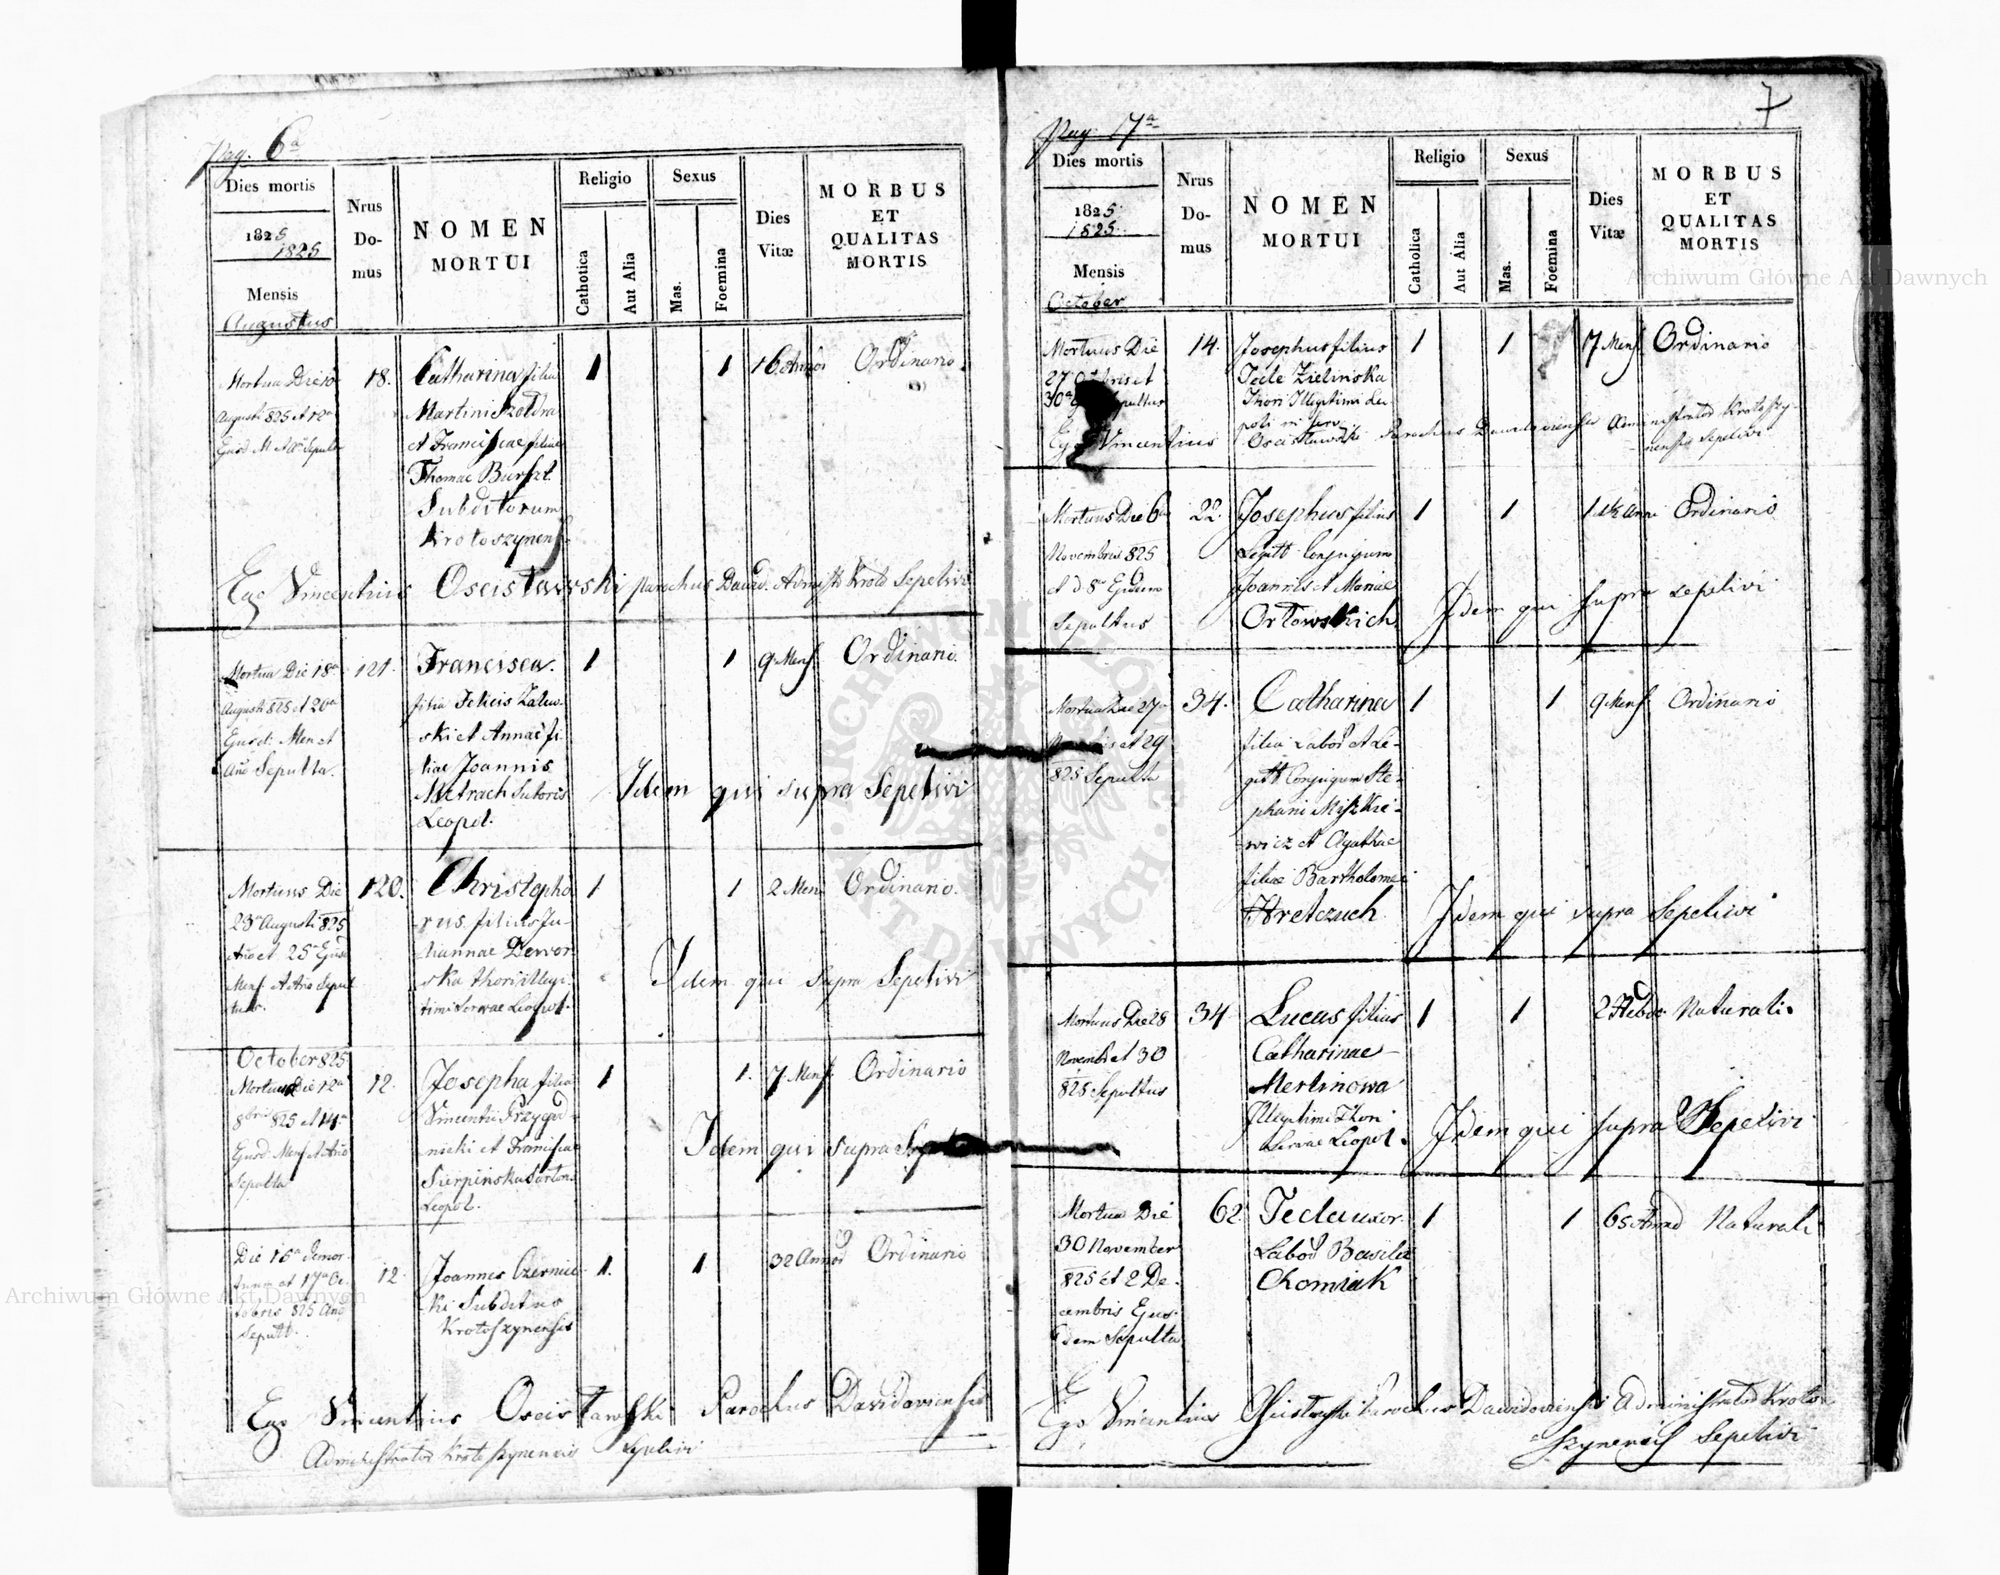 Pag. 6a
Dies mortis
1825
1825
Mensis
Augustus
Nrus Do-mus
NOMEN MORTUI
Religio
Catholica
Aut Alia
Sexus
Mas.
Foemina
Dies Vitæ
MORBUS ET QUALITAS MORTIS
Mortua Die 10
Augusti 825 et 12a
18.
Catharina filia
Martini
et Franciscae filiae
Thomae Burszt
Subditorum
Krotoszynens
1
1
16 Annor
Ordinario
Ego Vincentius Oscistawski parochus David. Admstr Kroto Sepelivi
Mortua Die 18a
Augusti 825 et 20a
Ejusd. Men et
Ano Sepulta.
121.
Francisca.
filia Felicis Zalew-
ski et Annae fi-
liae Joannis
Metrach Sutoris
Leopol.
1
1
9 Mens.
Ordinario.
Idem qui supra Sepelivi
Mortuus Die
23a Augusti 825
Ano et 25a Ejusd
Mens. et Ano Sepul
tus.
120.
Christopho
rus filius Ju-
liannae Dewor-
ska thori illegi-
timi Servae Leopol.
1
1
2 Men
Ordinario.
Idem qui supra Sepelivi
October 825
Mortua Die 12a
8bris 825 et 14a
Ejusd Mens et Ano
Sepulta
12.
Josepha filia
Vincentii Przygod-
nicki et Franciscae
Sierpinska Sartoris
Leopol.
1
1.
7 Mens.
Ordinario
Idem qui supra
Die 15a
et 17a Oc-
tobris 825 Ano
Sepult.
12.
Joannes Czernie-
ki Subditus
Krotoszynensis
1.
1
32 Annor
Ordinario
Ego Vincentius Oscistawski Parochus Davidoviensis
Administrator Krotoszynensis Sepelivi
7
Pag. 7a
Dies mortis
1825
1825.
Mensis
October
Nrus Do-mus
NOMEN MORTUI
Religio
Catholica
Aut Alia
Sexus
Mas.
Foemina
Dies Vitæ
MORBUS ET QUALITAS MORTIS
Mortuus Die
27
30a
14.
Josephus filius
Tecle Zielinska
Thori Illegitimi Leo
poli
1
1
7 Mens
Ordinario
Ego Vincentius Oscistawski Parochus Davidoviensis Administrator Krotoszy-
nensis Sepelivi
Mortuus Die 6a
Novembris 825
et d 8a Ejusdem
Sepultus
22.
Josephus filius
Legitt Conjugum
Joannis et Mariae
Ortowskich
1
1
Anni
Ordinario
Idem qui supra sepelivi
Mortua Die 27
et 29
825 Sepulta
34.
Catharina
filia Labor et Le-
gitt Conjugum Ste-
phani Miszkie-
wicz et Agathae
filiae Bartholomei
Hretczuch
1
1
9 Mens
Ordinario
Idem qui supra Sepelivi
Mortuus Die 28
Novembr et 30
825 Sepultus
34
Lucas filius
Catharinae
Mertinowa
Illegitimi Thori
Servae Leopol.
1
1
2 Hebdo
Naturali.
Idem qui supra Sepelivi
Mortua Die
30 November
825 et 2 De-
cembris Ejus-
dem Sepulta
62.
Tecla uxor
Labor Basilii
Chomiak
1
1
65 Annor
Naturali
Ego Vincentius Oscistawski Parochus Davidoviensis Administrator Kroto-
szynensis Sepelivi
Archiwum Główne Akt Dawnych
Archiwum Główne Akt Dawnych
ARCHIWUM GŁÓWNE AKT DAWNYCH